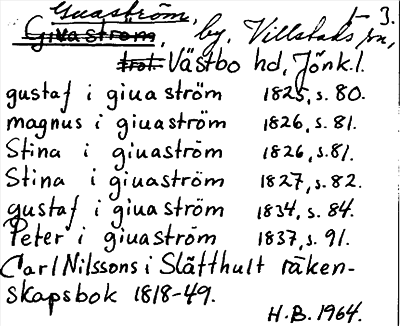 Giuaström, t-3.
Givastrom, by, Villstads sn,
trol. Västbo hd, Jönk.l.
gustaf i giuaström 1825, s. 80.
magnus i giuaström 1826, s. 81.
Stina i giuaström 1826, s. 81.
Stina i giuaström 1827, s. 82.
gustaf i giuaström 1834, s. 84.
Peter i giuaström 1837, s. 91.
Carl Nilssons i Slätthult räken-
skapsbok 1818-49.
H.B. 1964.